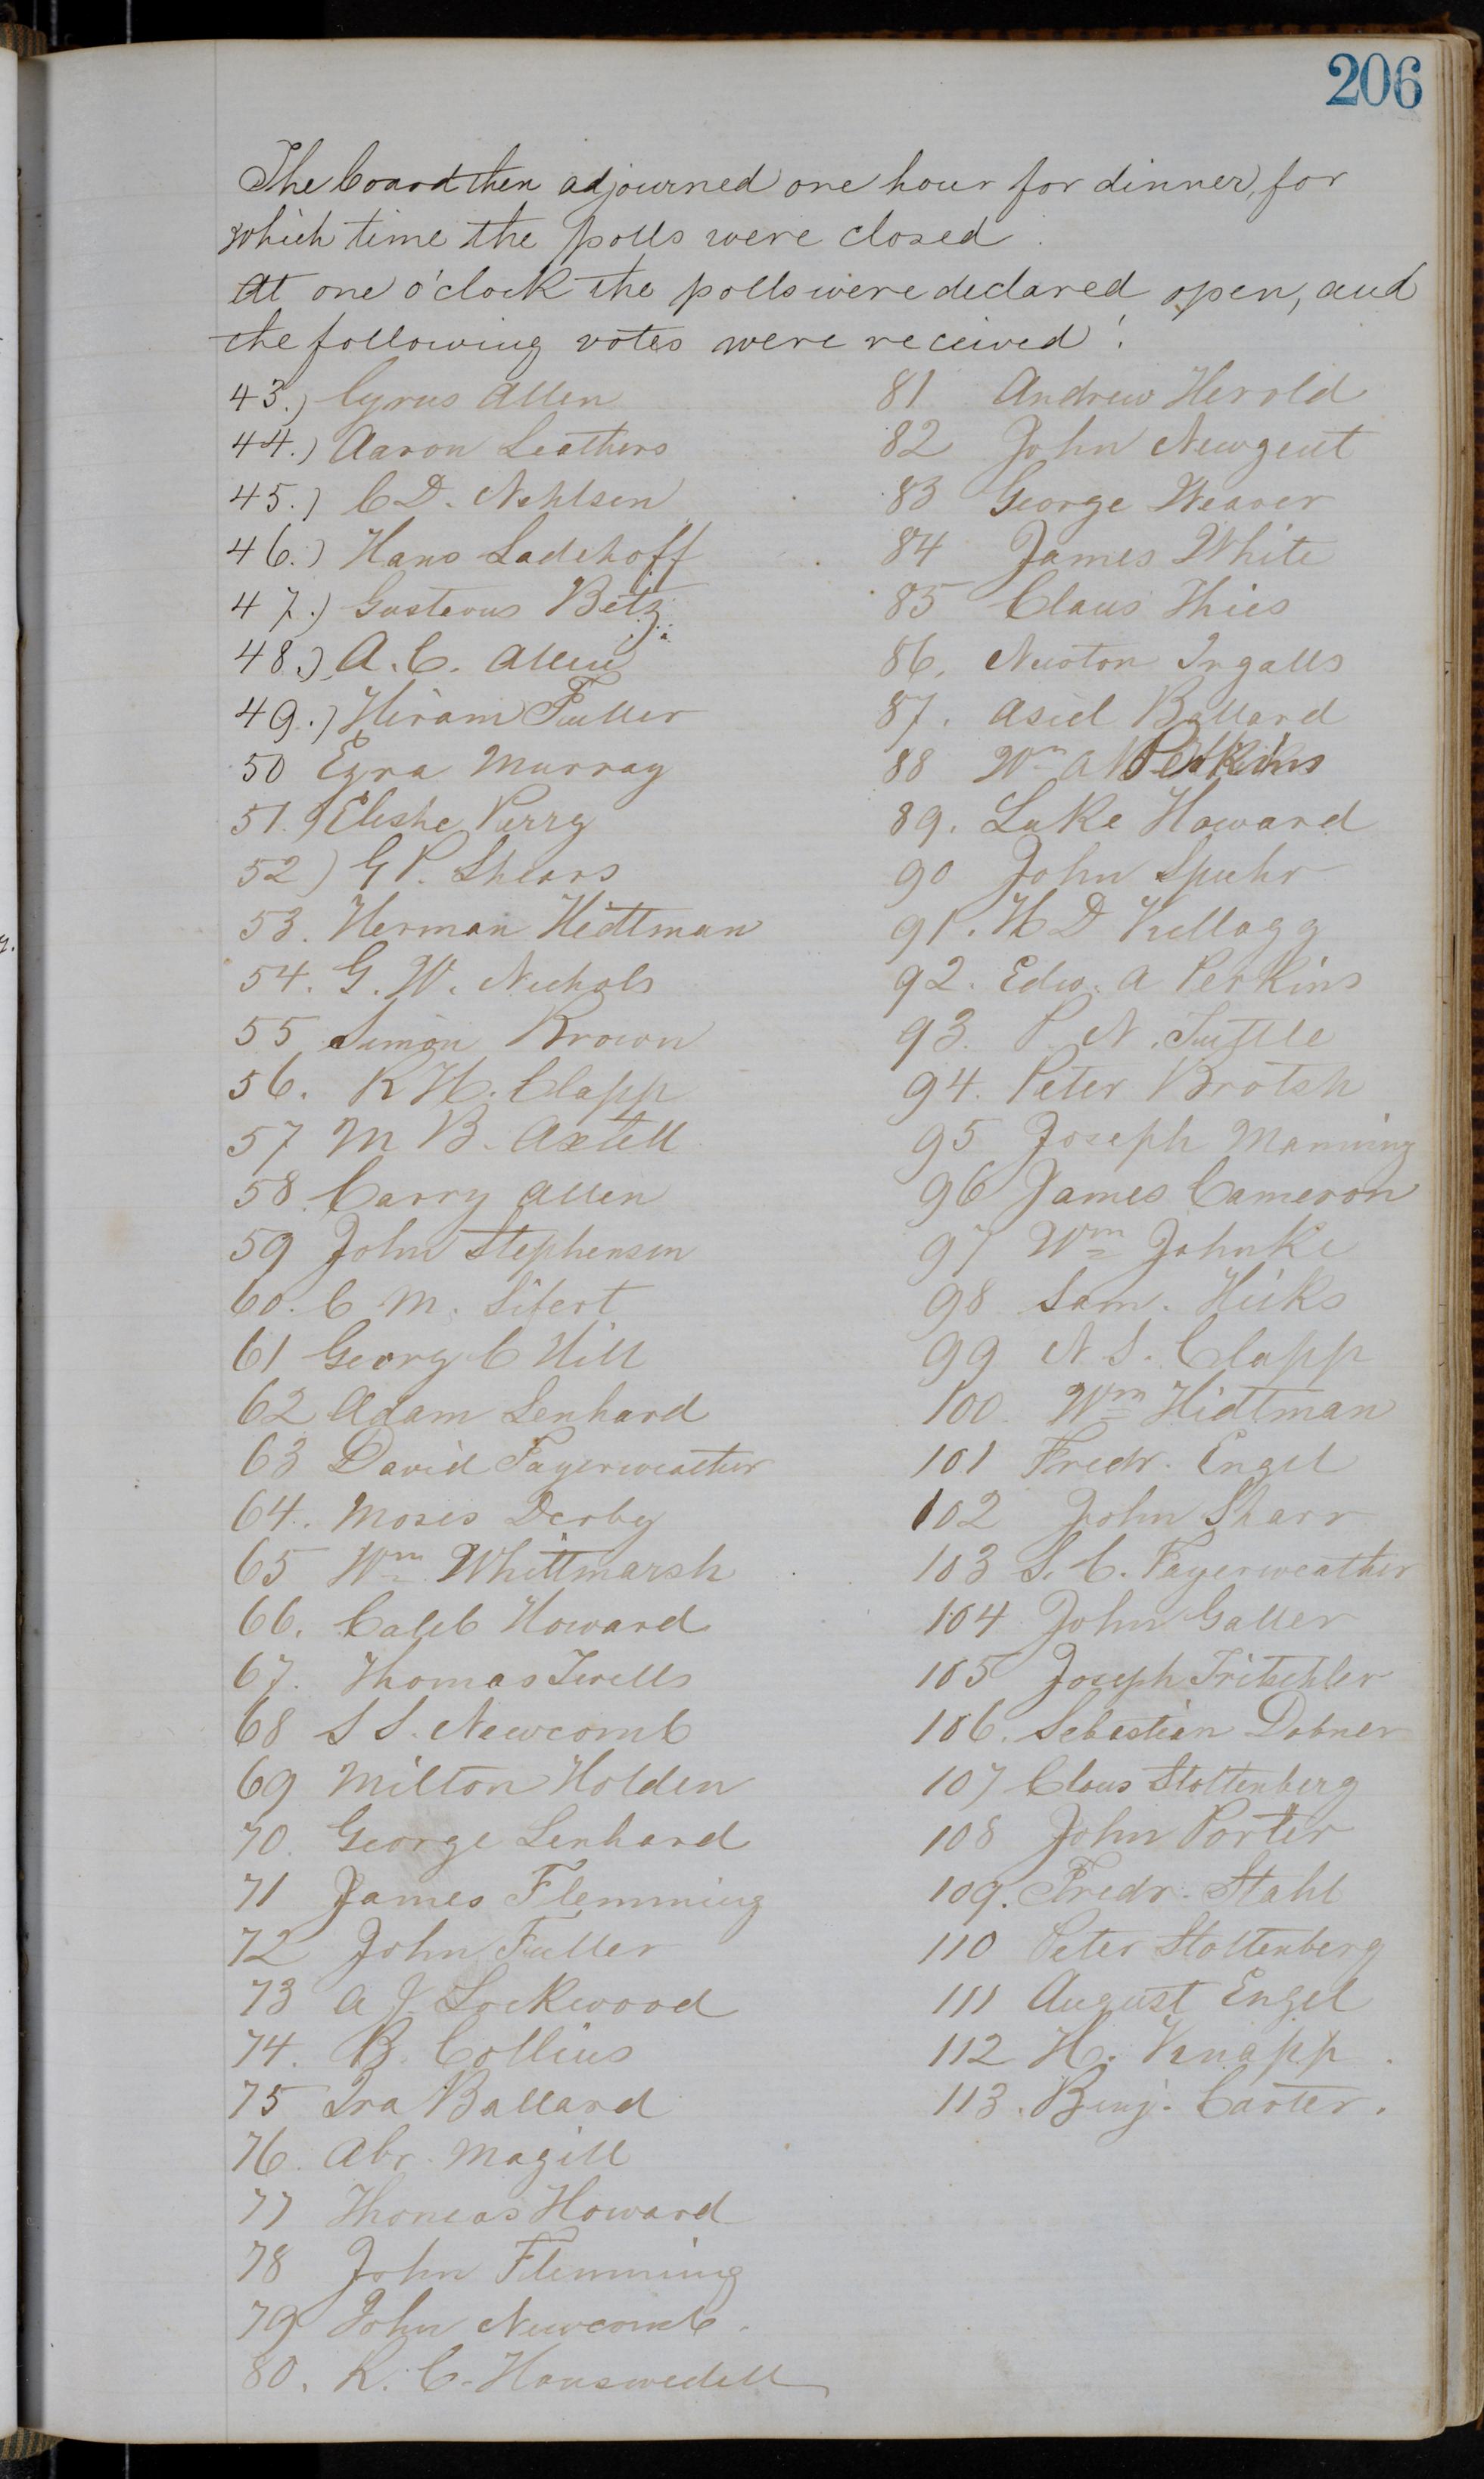 206
The board then adjourned one hour for dinner, for
which time the polls were closed.
At one o'clock the polls were declared open, and
the following votes were received:
43.) Cyrus Allen
44.) Aaron Leathers
45.) C D. Nehlsen
46.) Hans Ladehoff
47.) Gustavus Betz
48.) A. C. Allen
49.) Hiram Fuller
50 Ezra Murray
51.) Elishe Perry
52) G P. Shears
53. Herman Hidtman
54. G. W. Nichols
55 Simon Brown
56. R H. Clapp
57 M B. Axtell
58 Carry Allen
59 John Stephenson
60. C M. Sifert
61 Georg C Hill
62 Adam Lenhard
63 David Fayerweather
64. Moses Derby
65 Wm Whittmarsh
66. Caleb Howard
67. Thomas Twells
68 S S. Newcomb
69 Milton Holden
70. George Lenhard
71 James Flemming
72 John Fuller
73 A J Lockwood
74. B. Collins
75 Ira Ballard
76. Abr. Magill
77 Thomas Howard
78 John Flemming
79 John Newcomb.
80. R. C. Hanswedell
81 Andrew Herold
82 John Newgent
83 George Weaver
84 James White
85 Claus Thies
86. Newton Ingalls
87. Asiel Ballard
88 Wm A Perkins
89. Luke Howard
90 John Spuhr
91. H D Kellogg
92. Edw. A Perkins
93. P. N. Tuttle
94. Peter Brotsh
95 Joseph Manning
96 James Cameron
97 Wm Johnke
98 Sam. Hicks
99 N S. Clapp
100. Wm Hidtman
101 Fredr. Engel
102 John Sharr
103 S. C. Fayerweather
104 John Galler
105 Joseph Tritschler
106. Sebastian Dobner
107 Claus Stoltenberg
108 John Porter
109. Fredr. Stahl
110 Peter Stoltenberg
111 August Engel
112 H. Knapp.
113. Benj. Carter.